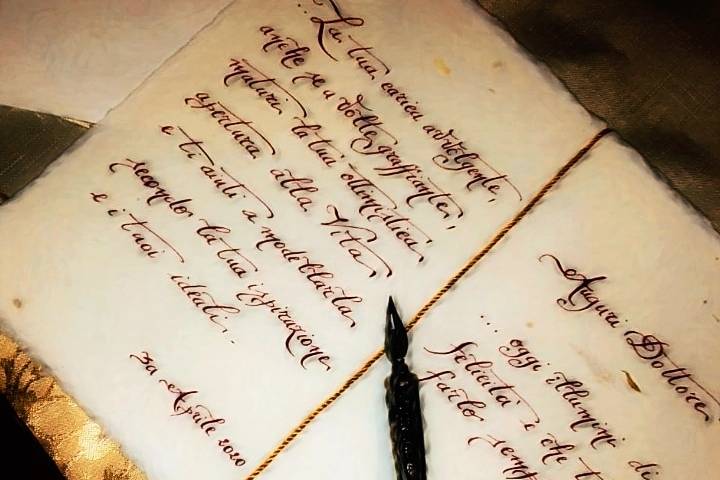 ...La tua carica avvolgente,
anche se a volte graffiante,
maturi la tua ottimistica
apertura alla Vita
e ti aiuti a modellarla
secondo la tua ispirazione
e i tuoi ideali..
Aprile 2020
Auguri Dottore
...oggi illumini di
felicità e che t
farlo semp